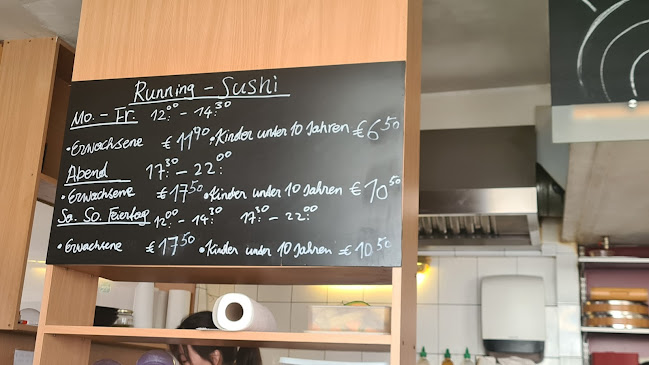 Running - Sushi
Mo. - Fr. 12:00 - 14:30
• Erwachsene € 11,90 • Kinder unter 10 Jahren € 6,50
Abend 17:30 - 22:00
• Erwachsene € 17,50 • Kinder unter 10 Jahren € 10,50
Sa. So. Feiertag 12:00 - 14:30 17:30 - 22:00
• Erwachsene € 17,50 • Kinder unter 10 Jahren € 10,50